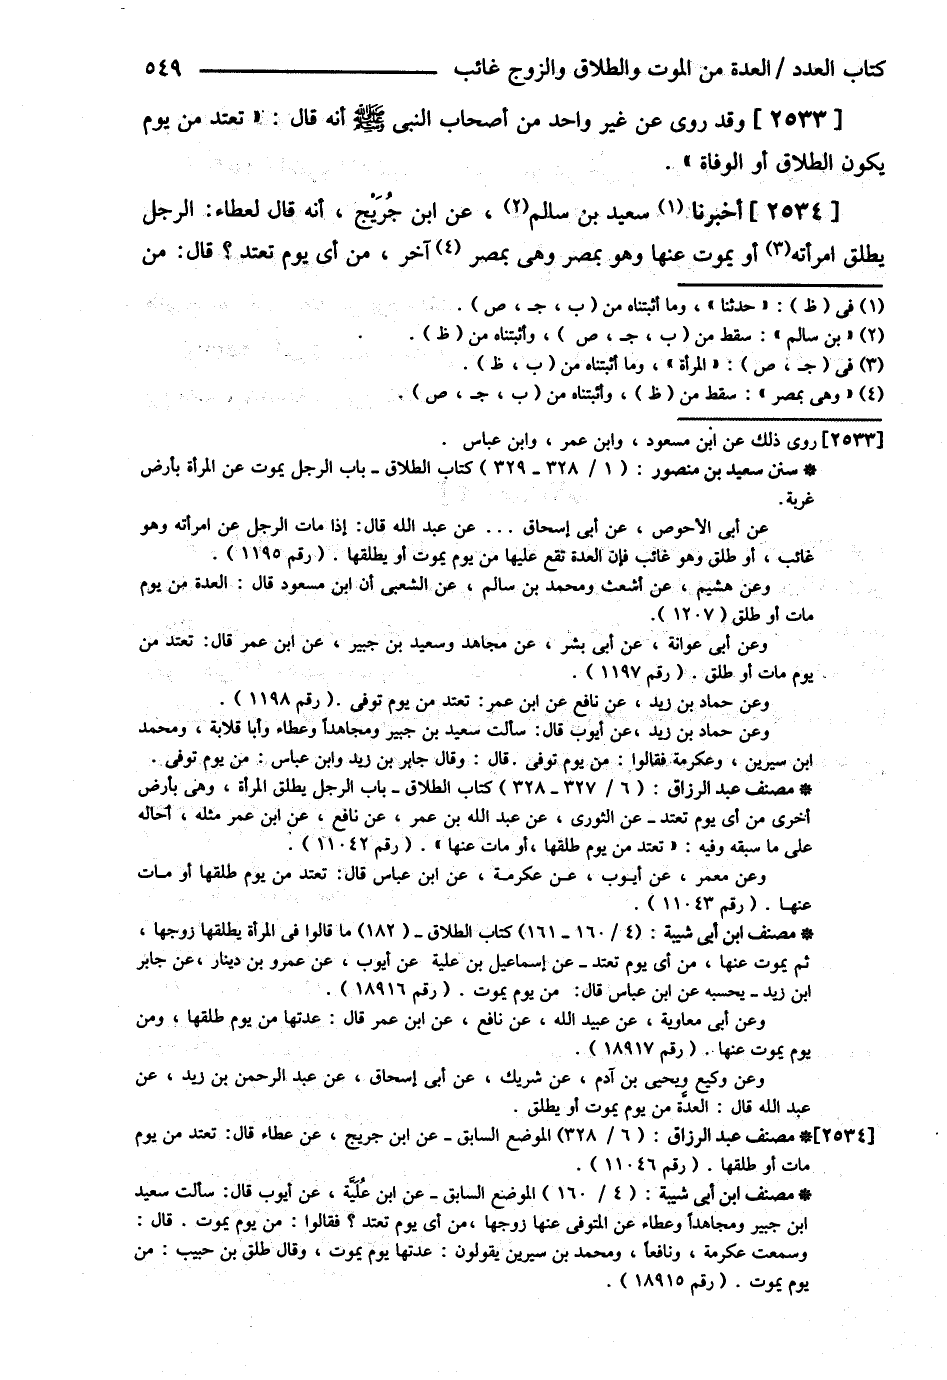 كتاب العدد / العدة من الموت والطلاق والزوج غائب ـــــــــ ٥٤٩
[ ٢٥٣٣ ] وقد روى عن غير واحد من أصحاب النبى ﷺ أنه قال : « تعتد من يوم
يكون الطلاق أو الوفاة » .
[ ٢٥٣٤ ] أخبرنا (١) سعيد بن سالم(٢) ، عن ابن جُرَيْج ، أنه قال لعطاء: الرجل
يطلق امرأته(٣) أو يموت عنها وهو بمصر وهى بمصر (٤) آخر ، من أى يوم تعتد ؟ قال: من
(١) فى ( ظ ) : « حدثنا » ، وما أثبتناه من ( ب ، جـ ، ص ) .
(٢) « بن سالم » : سقط من ( ب ، جـ ، ص ) ، وأثبتناه من ( ظ ) .
(٣) فى ( جـ ، ص ) : « المرأة » ، وما أثبتناه من ( ب ، ظ ) .
(٤) « وهى بمصر » : سقط من ( ظ ) ، وأثبتناه من ( ب ، جـ ، ص ) .
[٢٥٣٣] روى ذلك عن ابن مسعود ، وابن عمر ، وابن عباس .
* سنن سعيد بن منصور : ( ١ / ٣٢٨ ـ ٣٢٩ ) كتاب الطلاق ـ باب الرجل يموت عن المرأة بأرض
غربة.
عن أبى الأحوص ، عن أبى إسحاق ... عن عبد الله قال: إذا مات الرجل عن امرأته وهو
غائب ، أو طلق وهو غائب فإن العدة تقع عليها من يوم يموت أو يطلقها . ( رقم ١١٩٥ ) .
وعن هشيم ، عن أشعث ومحمد بن سالم ، عن الشعبى أن ابن مسعود قال : العدة من يوم
مات أو طلق ( ١٢٠٧ ).
وعن أبى عوانة ، عن أبى بشر ، عن مجاهد وسعيد بن جبير ، عن ابن عمر قال: تعتد من
يوم مات أو طلق . ( رقم ١١٩٧ ) .
وعن حماد بن زيد ، عن نافع عن ابن عمر: تعتد من يوم توفى .( رقم ١١٩٨ ) .
وعن حماد بن زيد ،عن أيوب قال: سألت سعيد بن جبير ومجاهداً وعطاء وأبا قلابة ، ومحمد
ابن سيرين ، وعكرمة فقالوا : من يوم توفى .قال : وقال جابر بن زيد وابن عباس : من يوم توفى .
* مصنف عبد الرزاق : ( ٦ / ٣٢٧ ـ ٣٢٨ ) كتاب الطلاق ـ باب الرجل يطلق المرأة ، وهى بأرض
أخرى من أى يوم تعتد ـ عن الثورى ، عن عبد الله بن عمر ، عن نافع ، عن ابن عمر مثله ، أحاله
على ما سبقه وفيه : « تعتد من يوم طلقها ،أو مات عنها » . ( رقم ١١٠٤٢ ) .
وعن معمر ، عن أيوب ، عن عكرمة ، عن ابن عباس قال: تعتد من يوم طلقها أو مات
عنها . ( رقم ١١٠٤٣ ) .
* مصنف ابن أبى شيبة : (٤ / ١٦٠ ـ ١٦١) كتاب الطلاق ـ ( ١٨٢) ما قالوا فى المرأة يطلقها زوجها ،
ثم يموت عنها ، من أى يوم تعتد ـ عن إسماعيل بن علية عن أيوب ، عن عمرو بن دينار ،عن جابر
ابن زيد ـ يحسبه عن ابن عباس قال: من يوم يموت . ( رقم ١٨٩١٦ ) .
وعن أبى معاوية ، عن عبيد الله ، عن نافع ، عن ابن عمر قال : عدتها من يوم طلقها ، ومن
يوم يموت عنها . ( رقم ١٨٩١٧ ) .
وعن وكيع ويحيى بن آدم ، عن شريك ، عن أبى إسحاق ، عن عبد الرحمن بن زيد ، عن
عبد الله قال : العدَّة من يوم يموت أو يطلق .
[٢٥٣٤] * مصنف عبد الرزاق : ( ٦ / ٣٢٨) الموضع السابق ـ عن ابن جريج ، عن عطاء قال: تعتد من يوم
مات أو طلقها . ( رقم ١١٠٤٦ ) .
* مصنف ابن أبى شيبة : ( ٤ / ١٦٠ ) الموضع السابق ـ عن ابن عُلَيَّة ، عن أيوب قال: سألت سعيد
ابن جبير ومجاهداً وعطاء عن المتوفى عنها زوجها ،من أى يوم تعتد ؟ فقالوا : من يوم يموت . قال :
وسمعت عكرمة ، ونافعاً ، ومحمد بن سيرين يقولون : عدتها يوم يموت ، وقال طلق بن حبيب : من
يوم يموت . ( رقم ١٨٩١٥ ) .